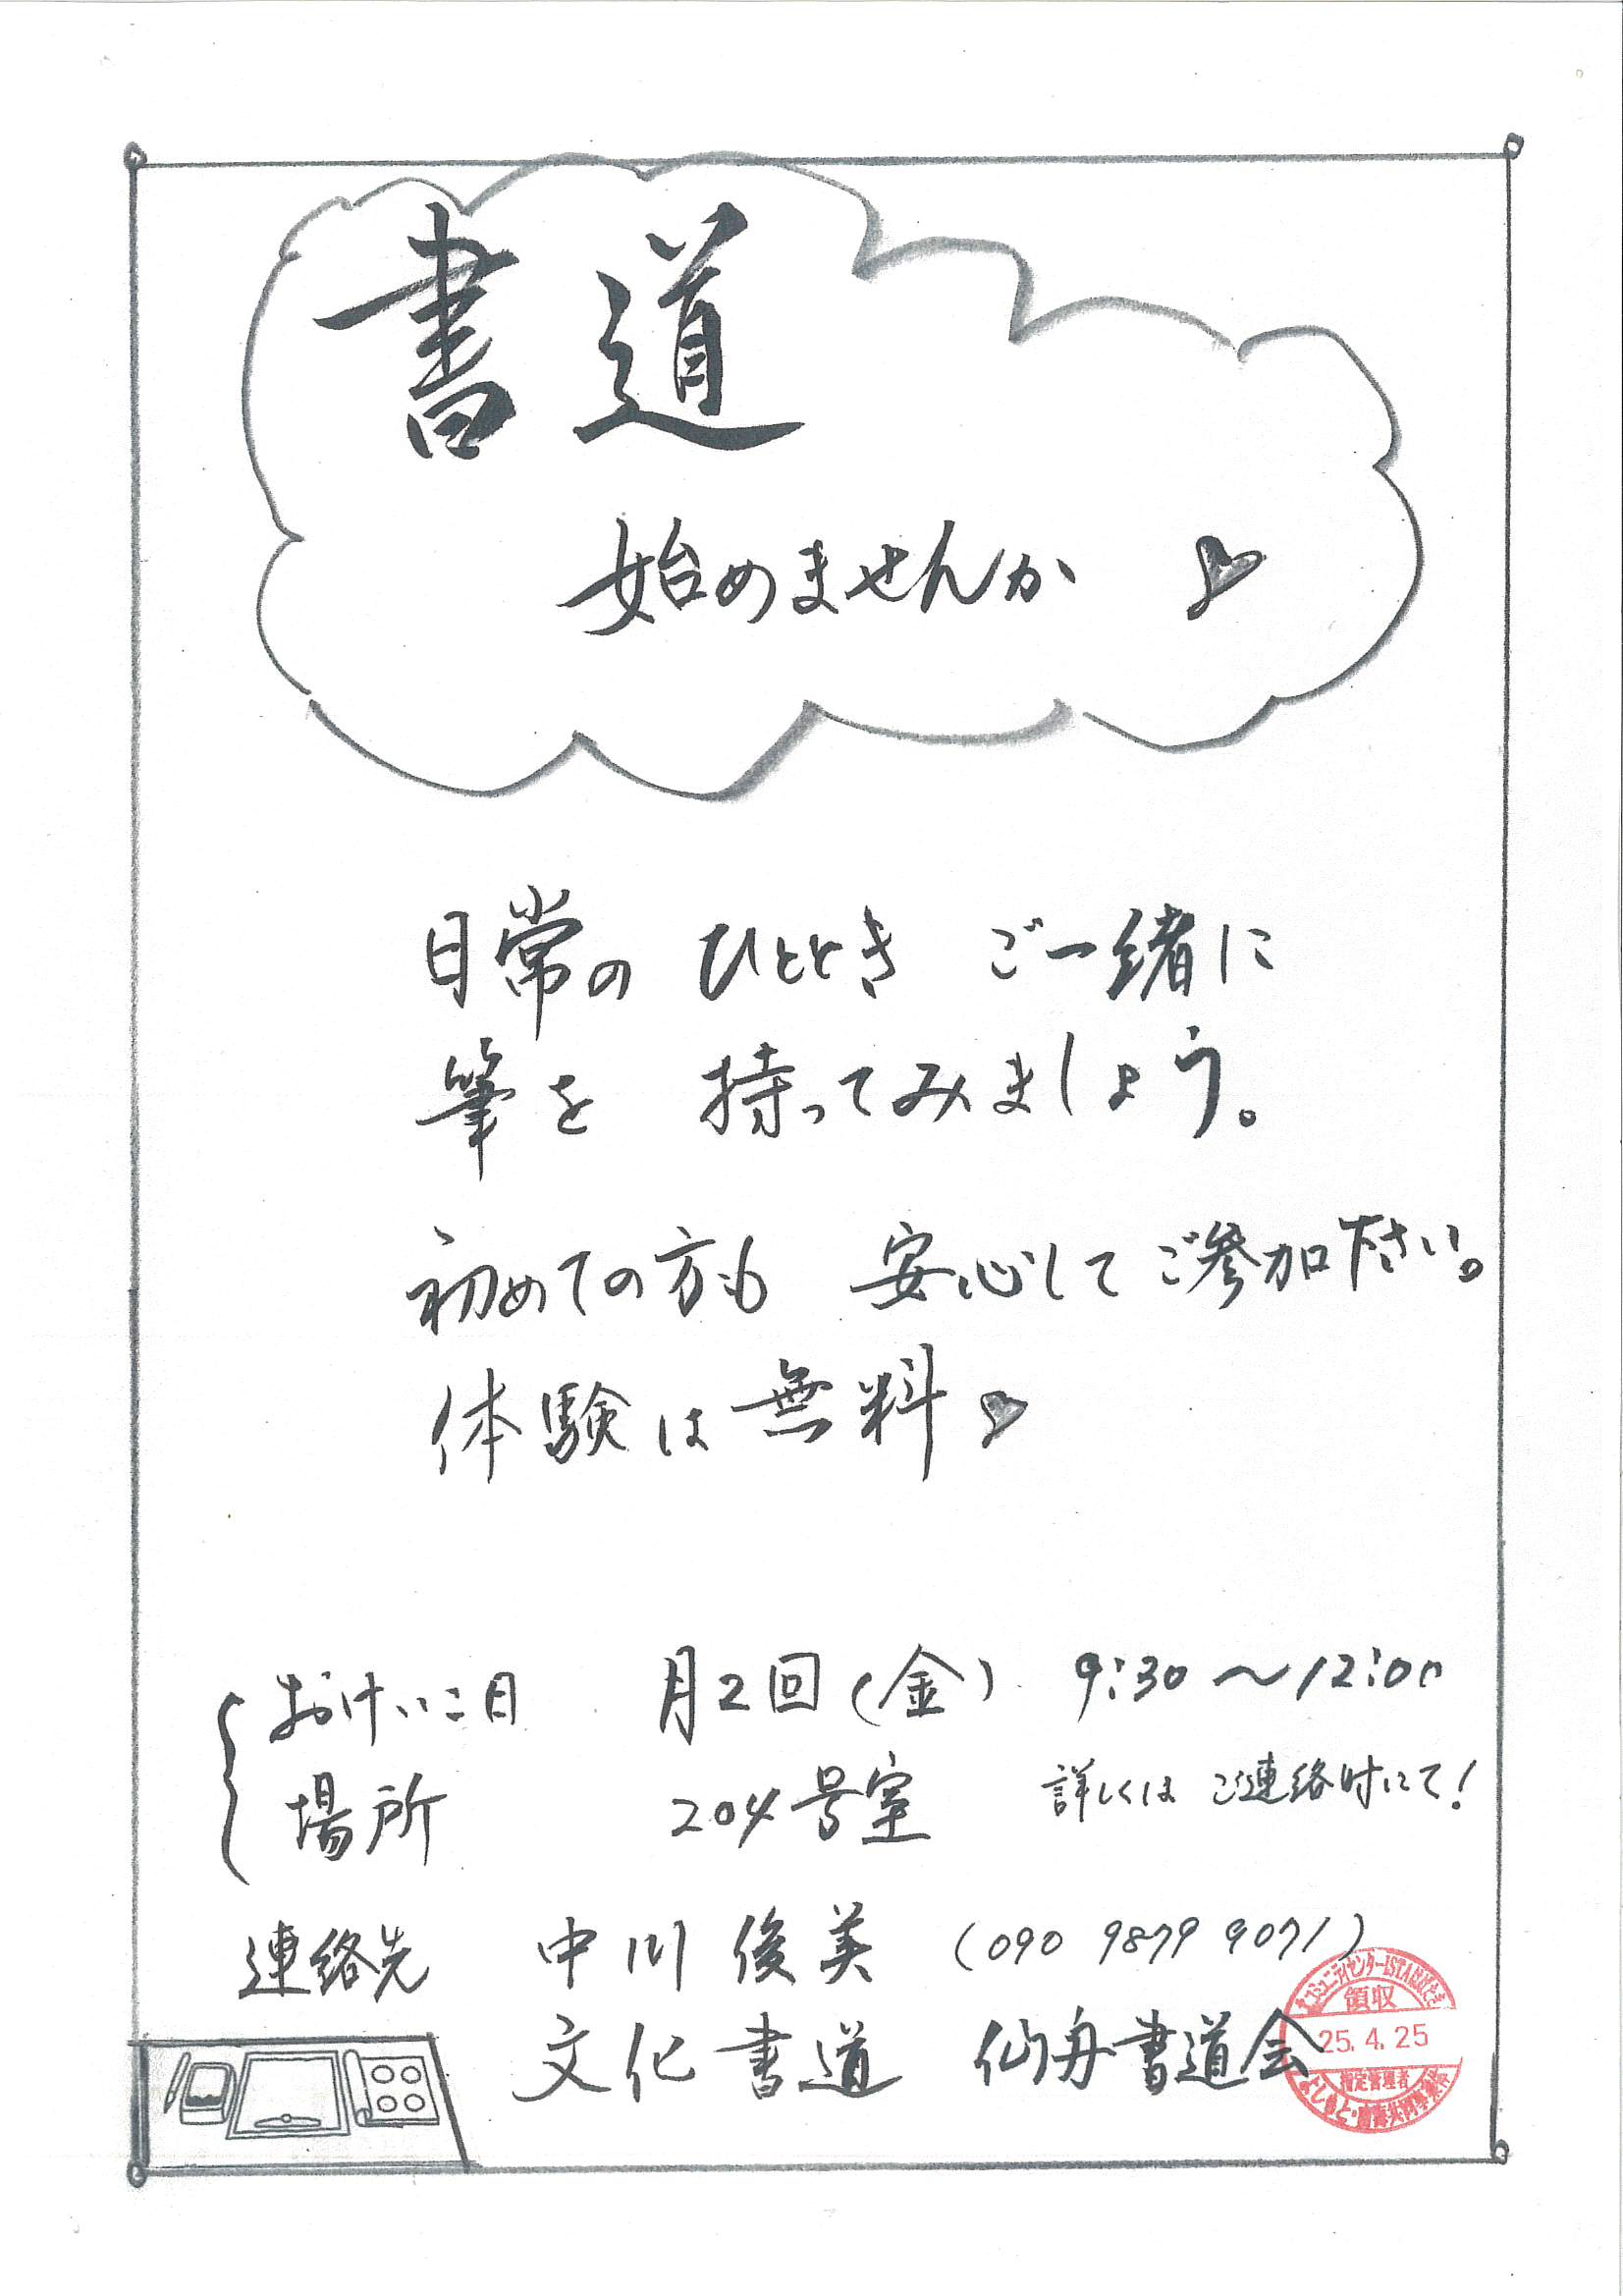 書道
始めませんか
日常の ひととき ご一緒に
筆を 持ってみましょう。
初めての方も 安心してご参加下さい。
体験は無料
おけいこ日 月2回(金) 9:30〜12:00
場所 204号室 詳しくは ご連絡時にて!
連絡先 中川 俊美 (090 9879 9071)
文化書道 仙舟書道会
領収
25.4.25
指定管理者